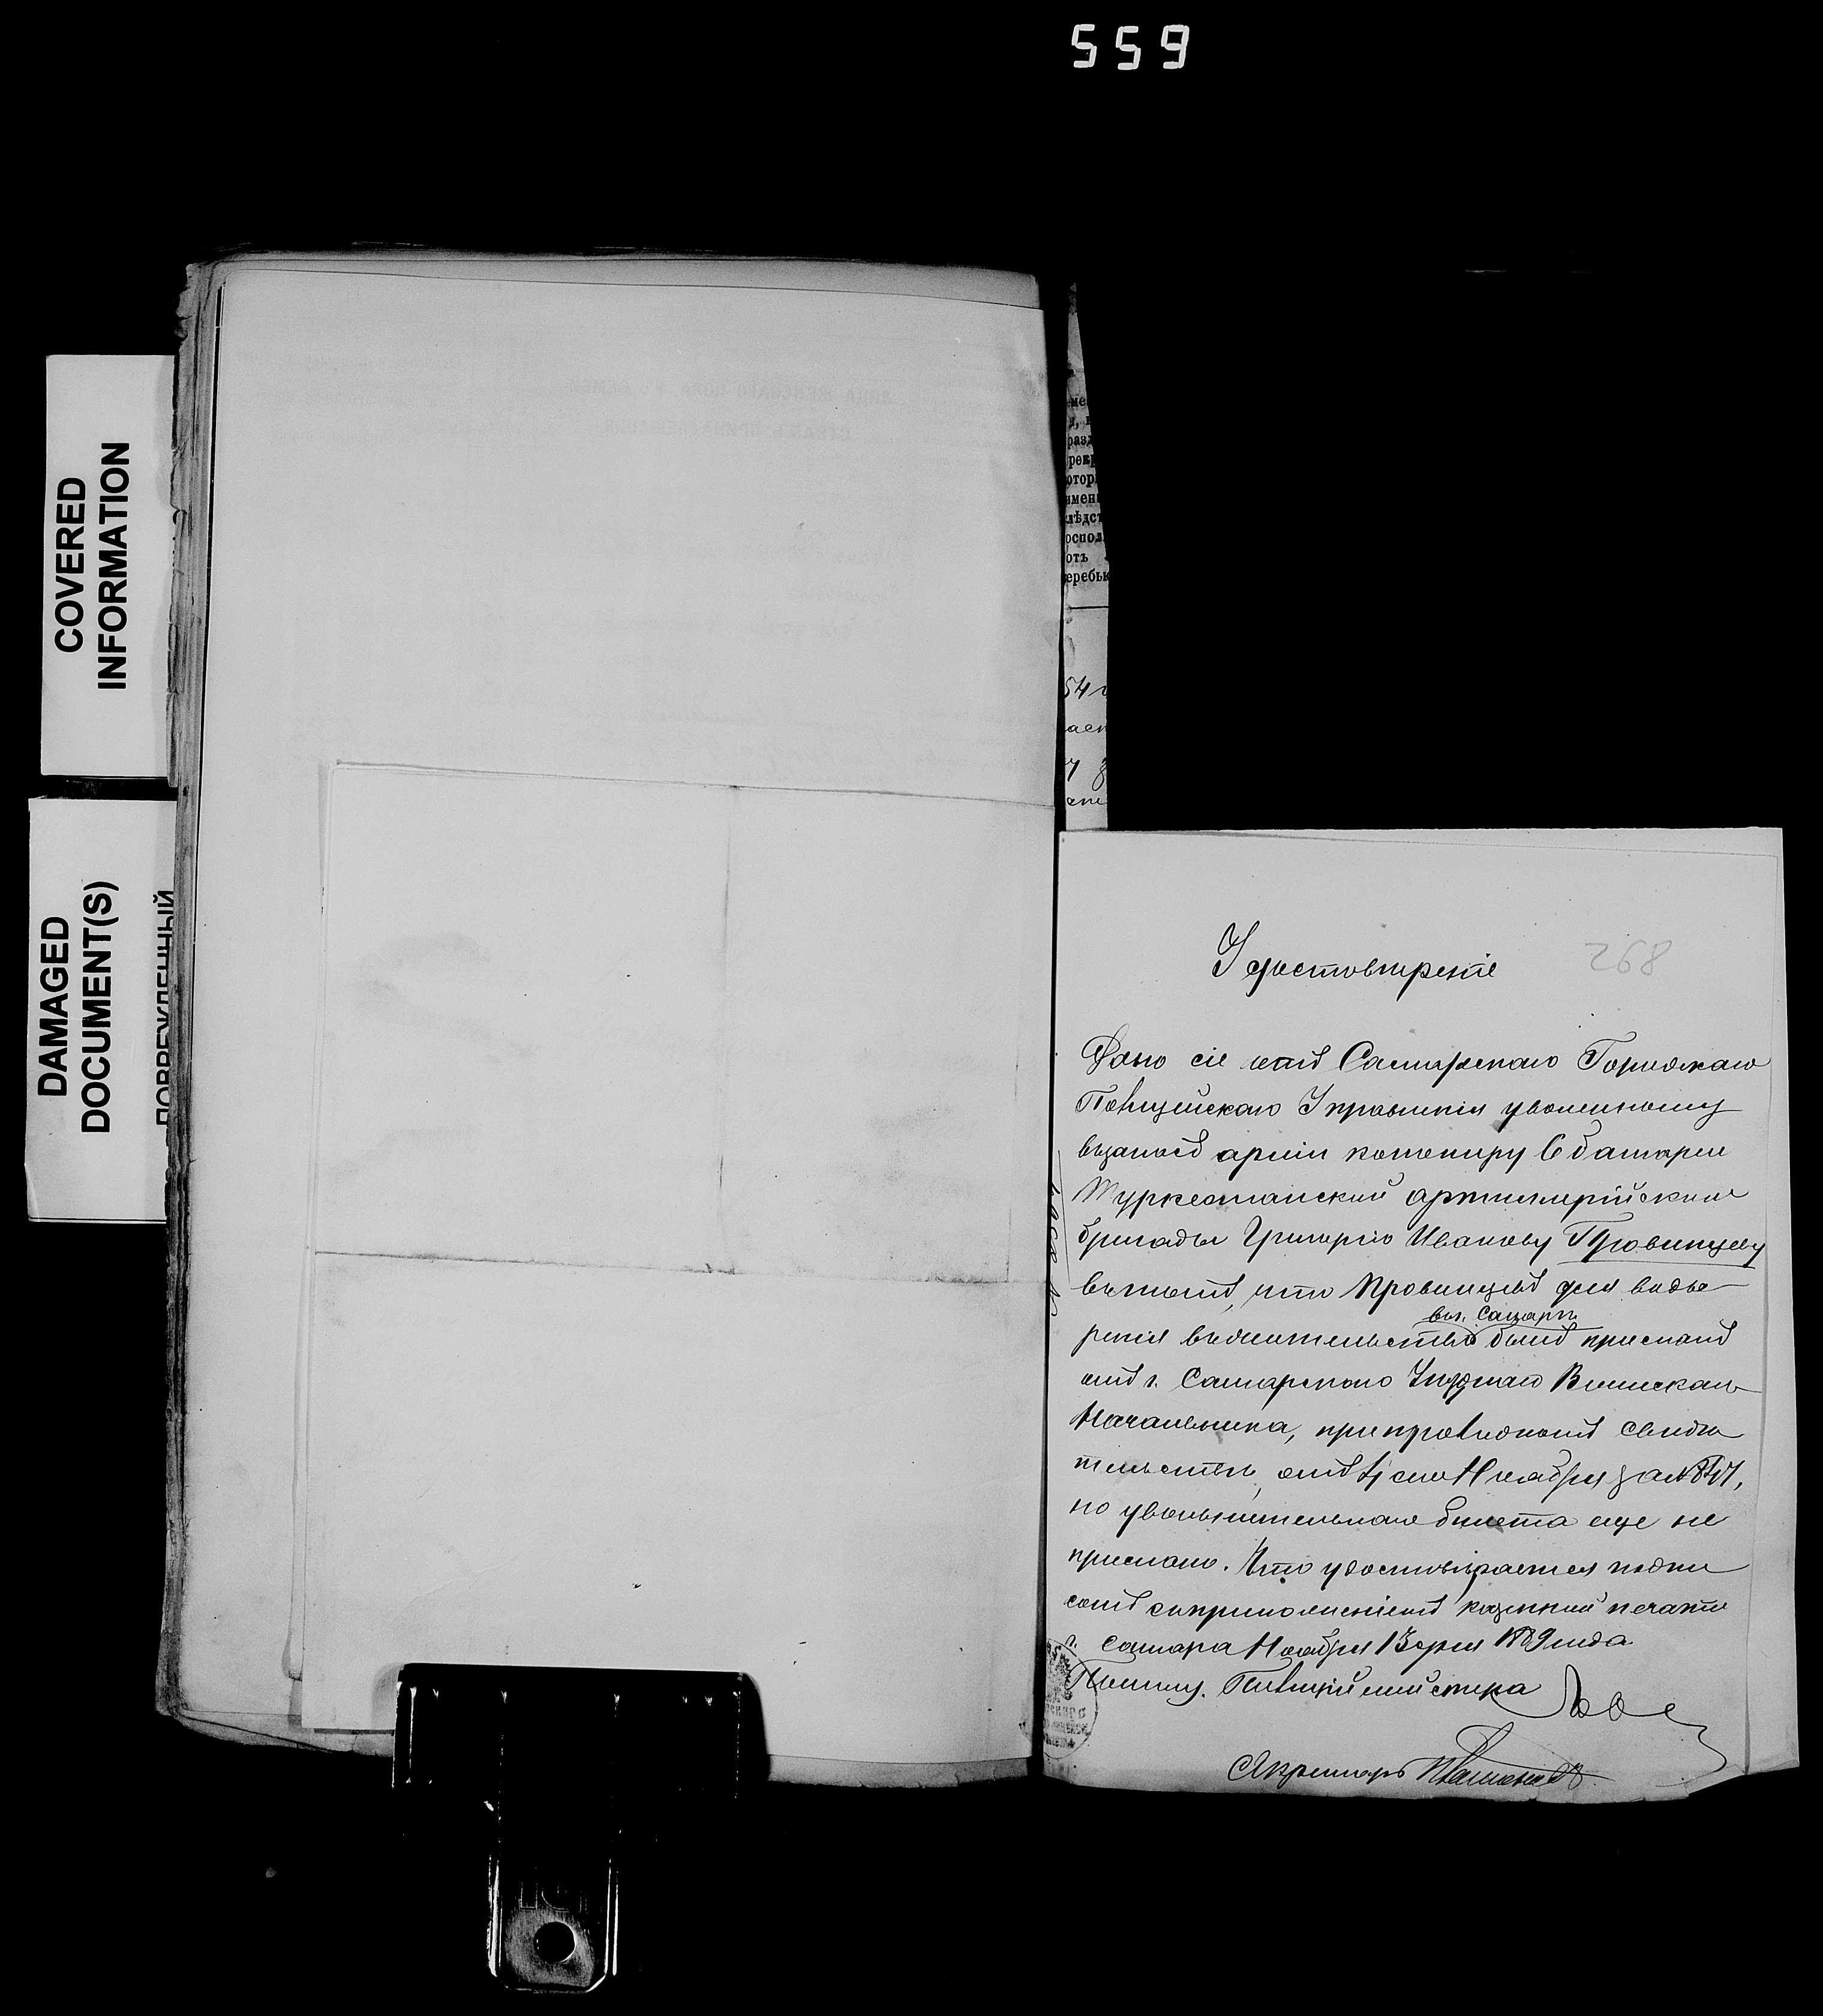 559
COVERED
INFORMATION
DAMAGED
DOCUMENT(S)
ПОВРЕЖДЕННЫЙ
268
Удостовѣреніе
Дано сіе изъ Самарскаго Городскаго
Полицейскаго Управленія уволенному
въ запасъ арміи канониру 6 батареи
Туркестанской артиллерійской
бригады Григорію Иванову Провинцеву
въ томъ, что Провинцевъ для водво
ренія въ жительство въ г. Самарѣ былъ присланъ
отъ г. Самарскаго Уѣзднаго Воинскаго
Начальника, при проводномъ свидѣ
тельствѣ, отъ сего Ноября за №
но увольнительнаго билета еще не
прислано. Что удостовѣряется подпи
сомъ съ приложеніемъ казенной печати
г. Самара Ноября 13 дня 1889 года
Полицiймейстера
Секретарь